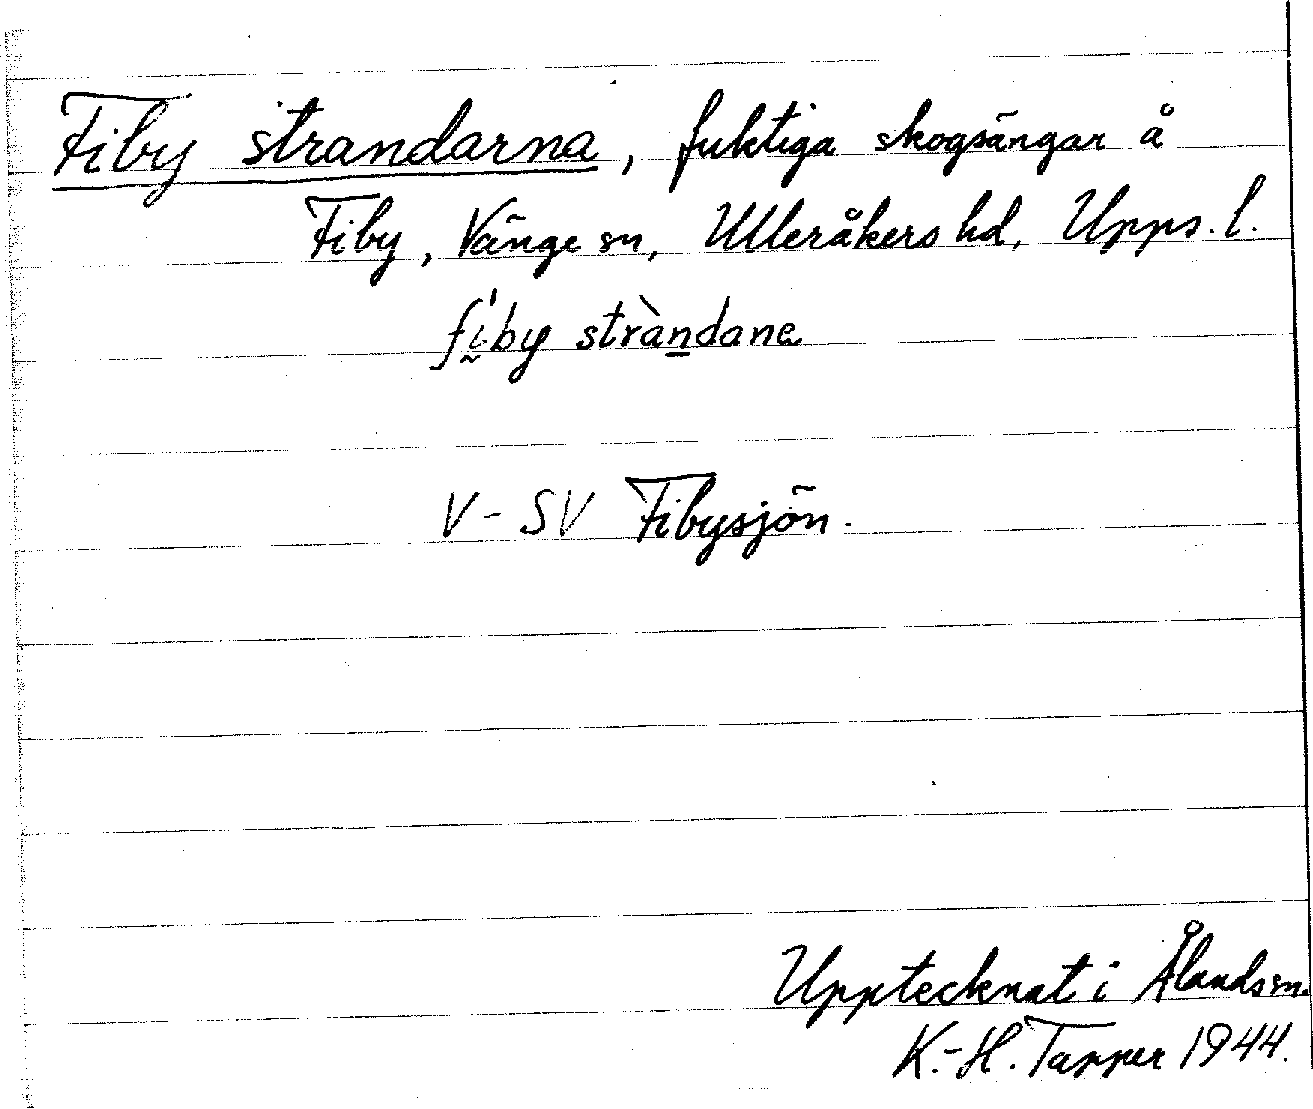 Fiby strandarna, fuktiga skogsängar å
Fiby, Vänge sn, Ulleråkers hd, Upps. l.
fḭ́by stràn̲dane
V-SV Fibysjön.
Upptecknat i Ålands sn.
K.-H. Tapper 1944.